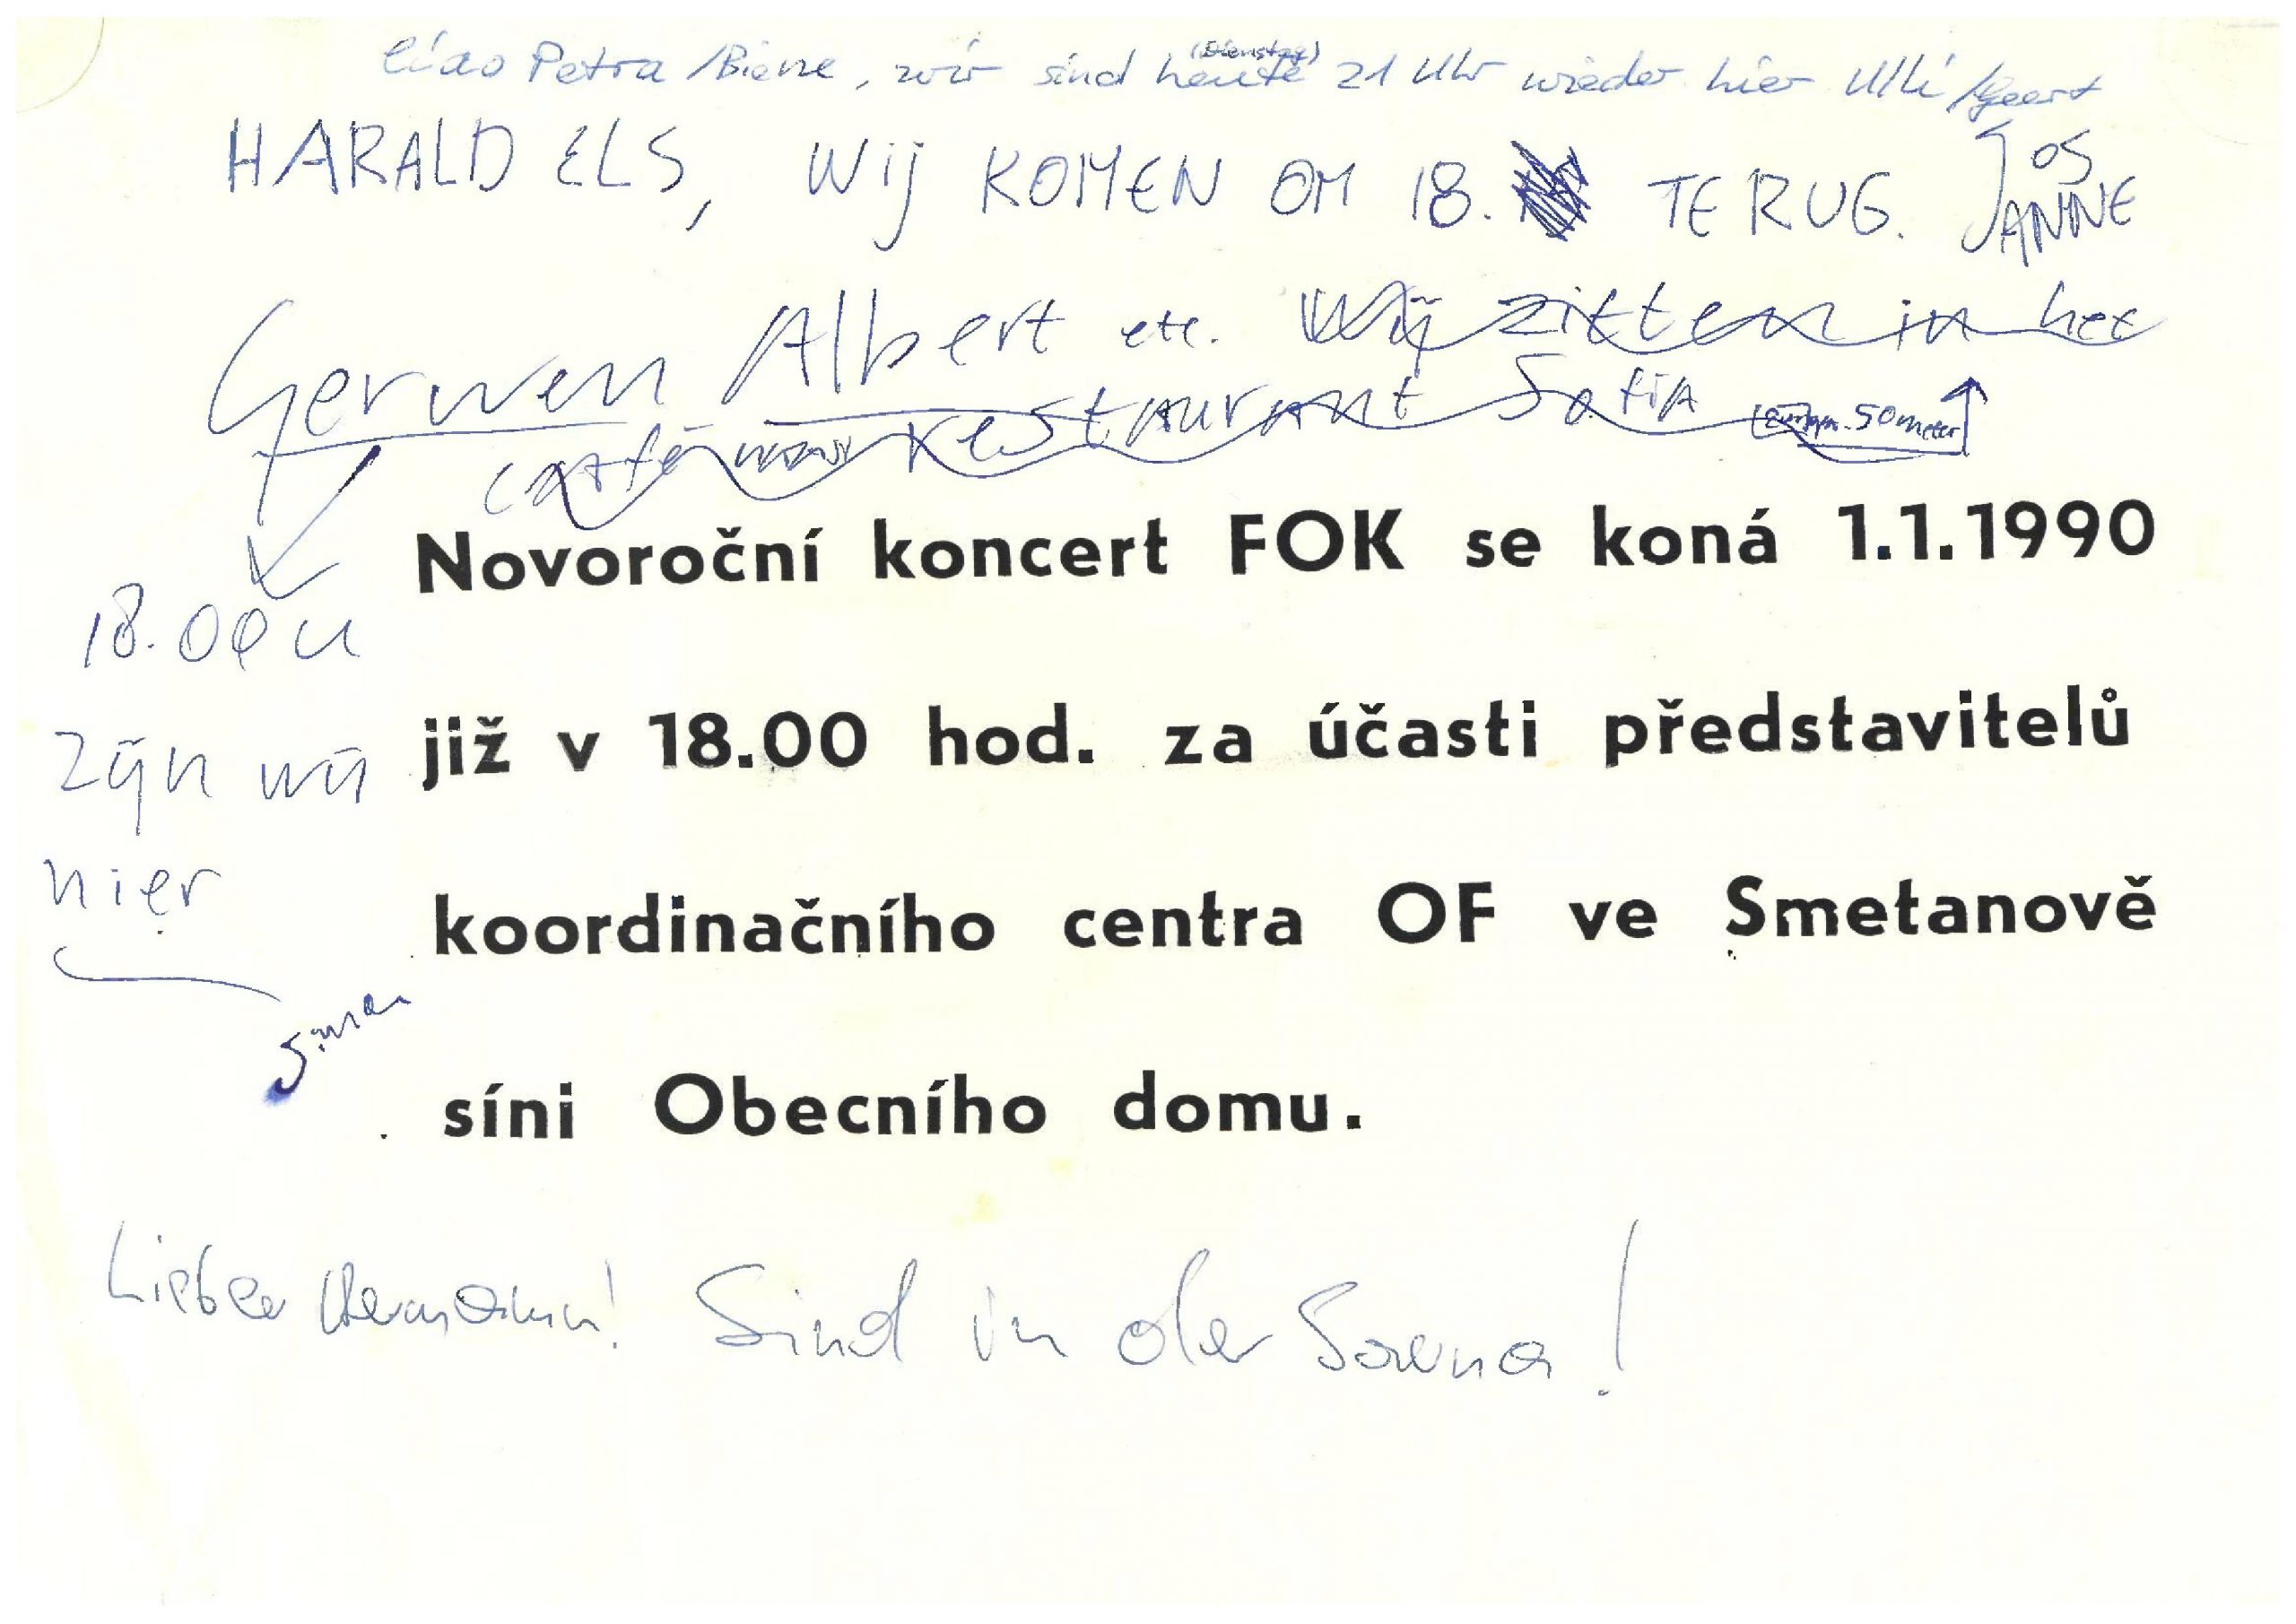 Ciao Petra / Biene, wir sind heute (Dienstag) 21 Uhr wieder hier Ulli / Geert
HARALD ELS, WIJ KOMEN OM 18. TERUG. JOS
JANNE
Gerwen Albert etc. Wij zitten in het
café restaurant Sofia 50 meter
18.00 u
zijn wij
hier
Novoroční koncert FOK se koná 1.1.1990
již v 18.00 hod. za účasti představitelů
koordinačního centra OF ve Smetanově
síni Obecního domu.
Lieber Hermann! Sind in der Sauna!